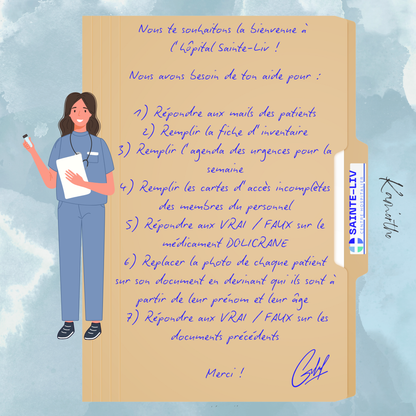 Nous te souhaitons la bienvenue à
l'hôpital Sainte-Liv !
Nous avons besoin de ton aide pour :
1) Répondre aux mails des patients
2) Remplir la fiche d'inventaire
3) Remplir l'agenda des urgences pour la
semaine
4) Remplir les cartes d'accès incomplètes
des membres du personnel
5) Répondre aux VRAI / FAUX sur le
médicament DOLICRANE
6) Replacer la photo de chaque patient
sur son document en devinant qui ils sont à
partir de leur prénom et leur âge
7) Répondre aux VRAI / FAUX sur les
documents précédents
Merci !
SAINTE-LIV